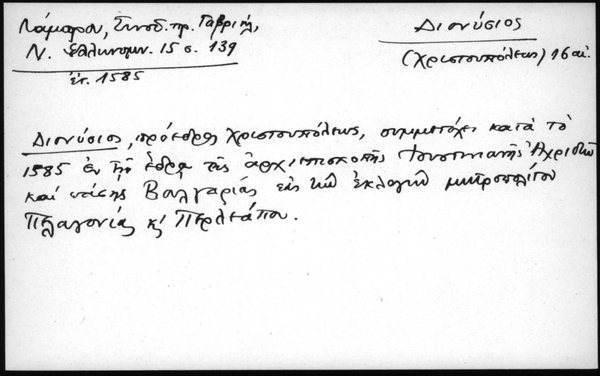 Λάμπρου, Συνοδ. πρ. Γαβριήλ,
Ν. Ελληνομν. 15 σ. 139
ἐτ. 1585
Διονύσιος
(Χριστουπόλεως) 16 αἰ.
Διονύσιος, πρόεδρος Χριστουπόλεως, συμμετέχει κατὰ τὸ
1585 ἐν τῇ ἕδρᾳ τῆς ἀρχιεπισκοπῆς Ἰουστινιανῆς Ἀχριδῶν
καὶ πάσης Βουλγαρίας εἰς τὴν ἐκλογὴν μητροπολίτου
Πελαγονίας κ' Περλεάπου.